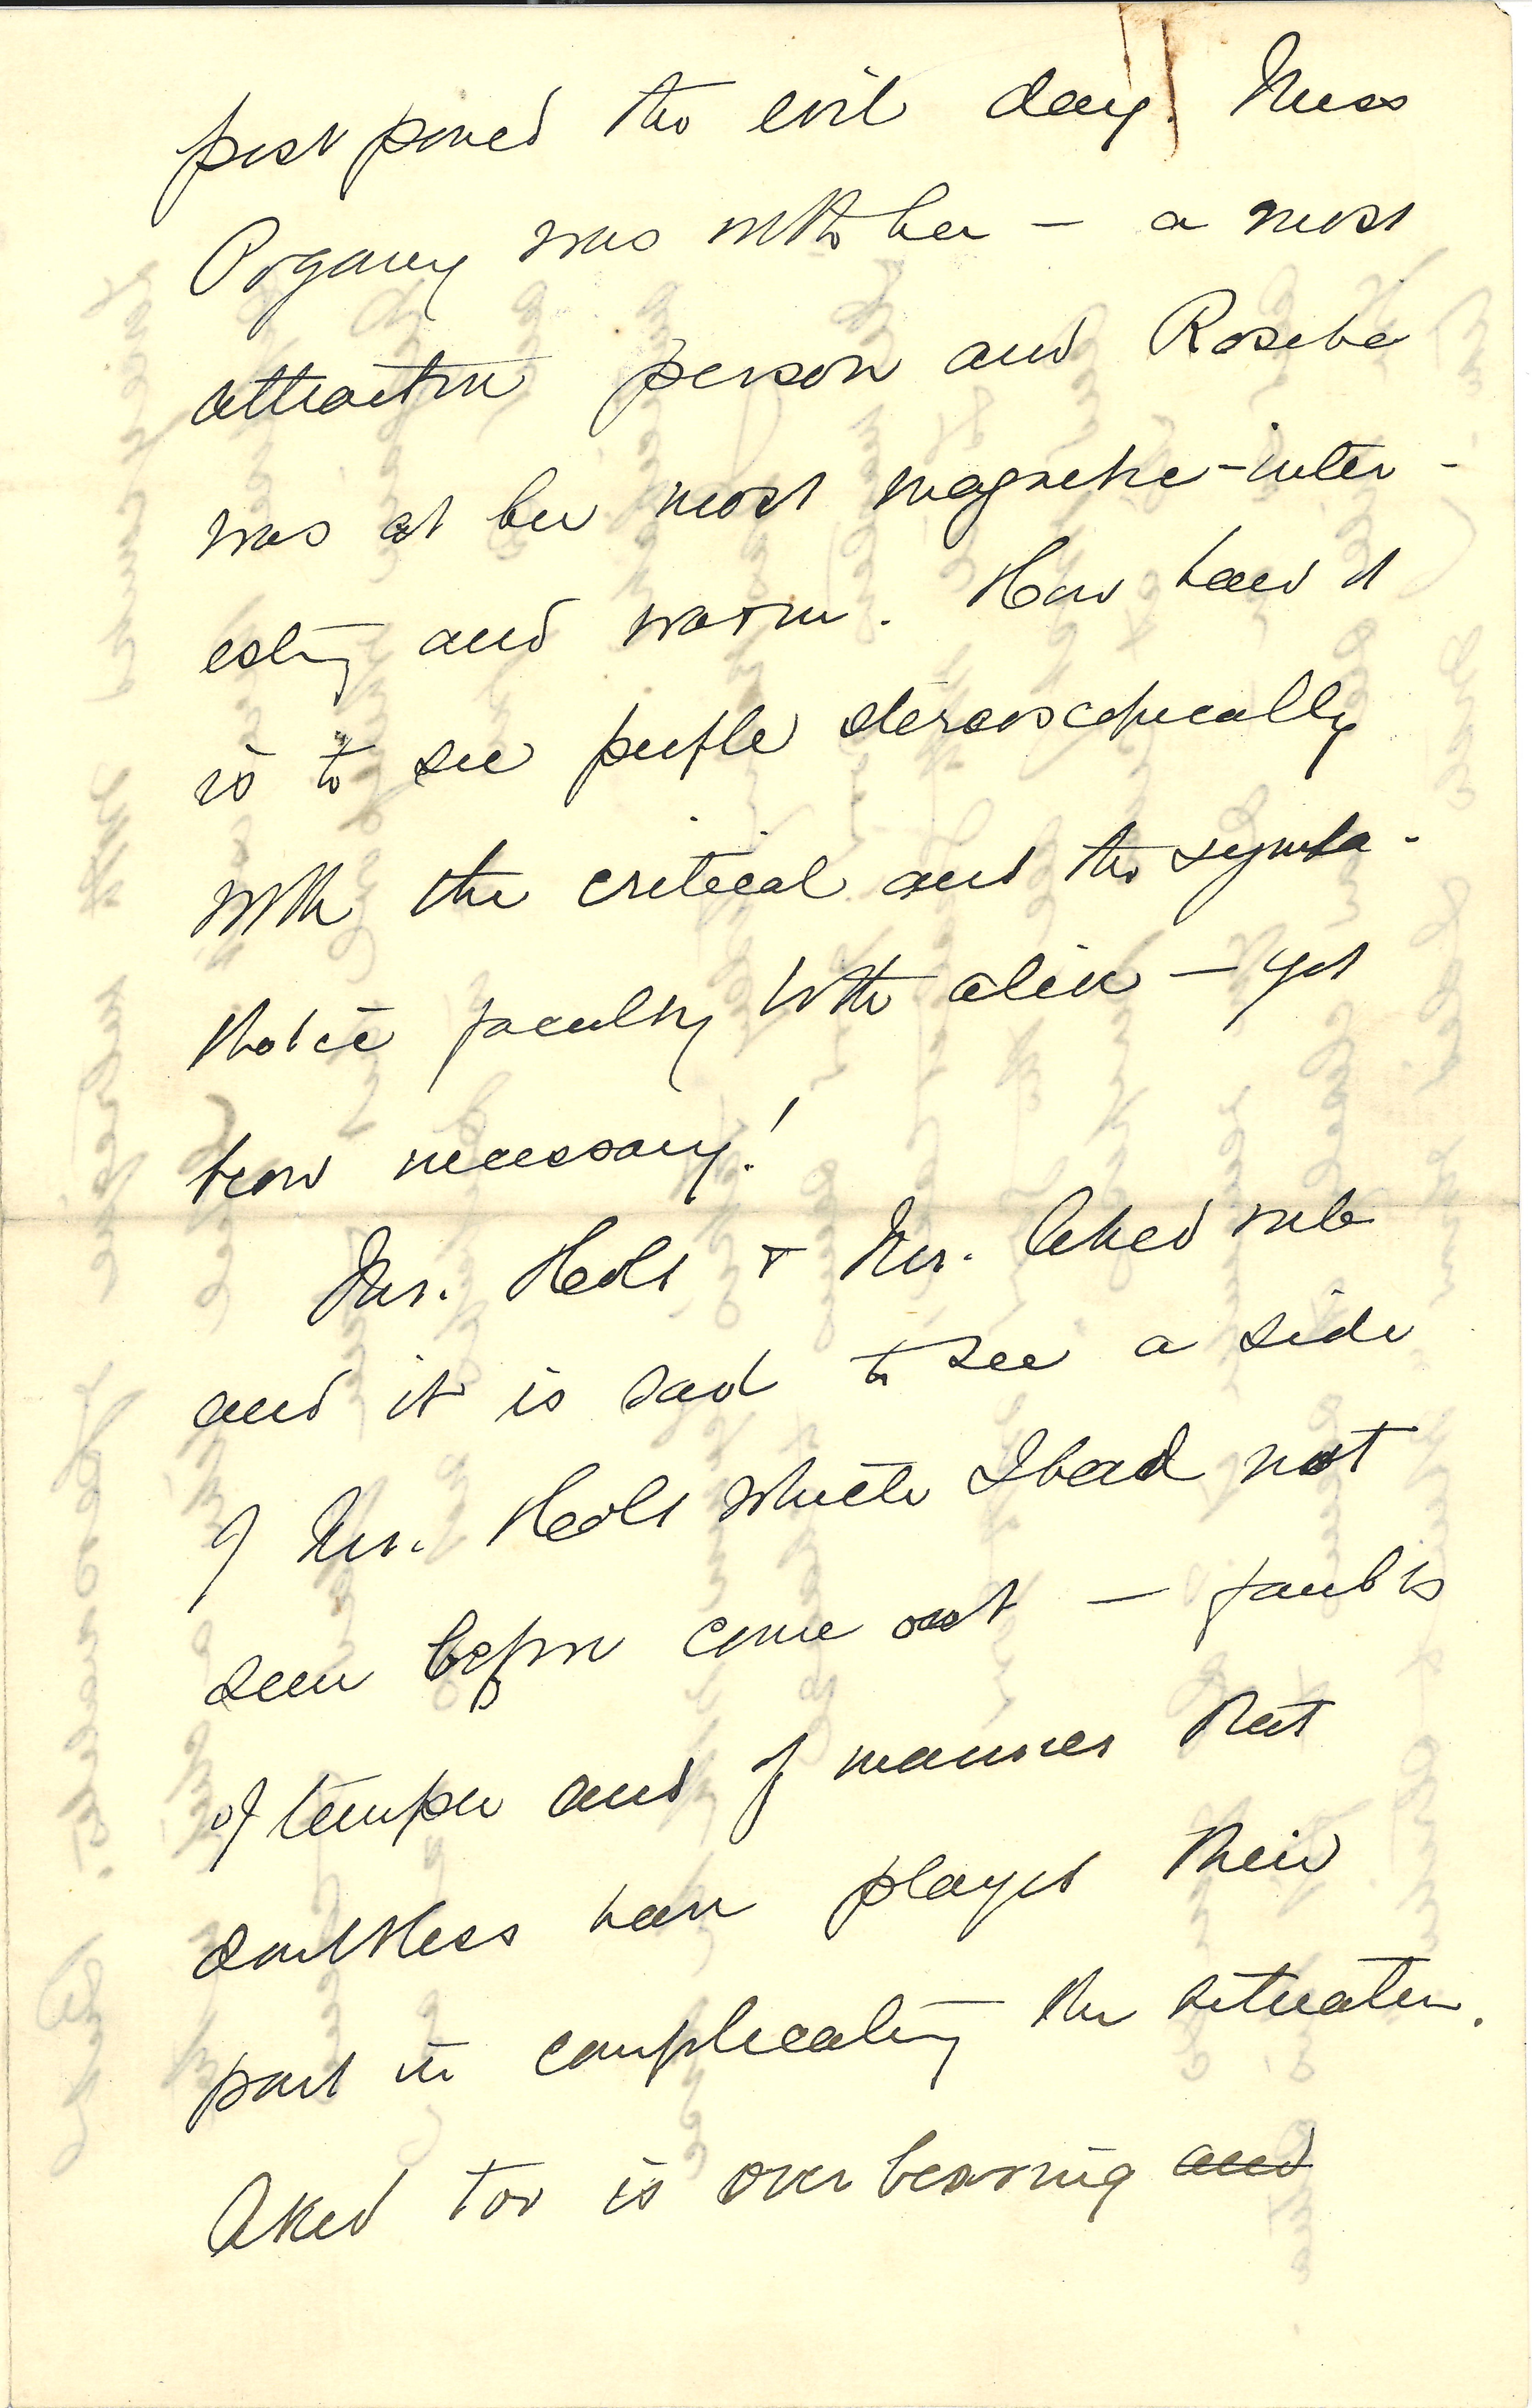 postponed the evil day. Miss
Pogany was with her — a most
attractive person and Rosika
was at her most magnetic - inter-
esting and warm. How hard it
is to see people stereoscopically
with the critical and the sympa-
thetic faculty both alive — yet
how necessary!
Mr. Holt & Mr. Aked rule
and it is sad to see a side
of Mr. Holt which I had not
seen before come out — faults
of temper and of manner that
doubtless have played their
part in complicating the situation.
Aked too is overbearing and